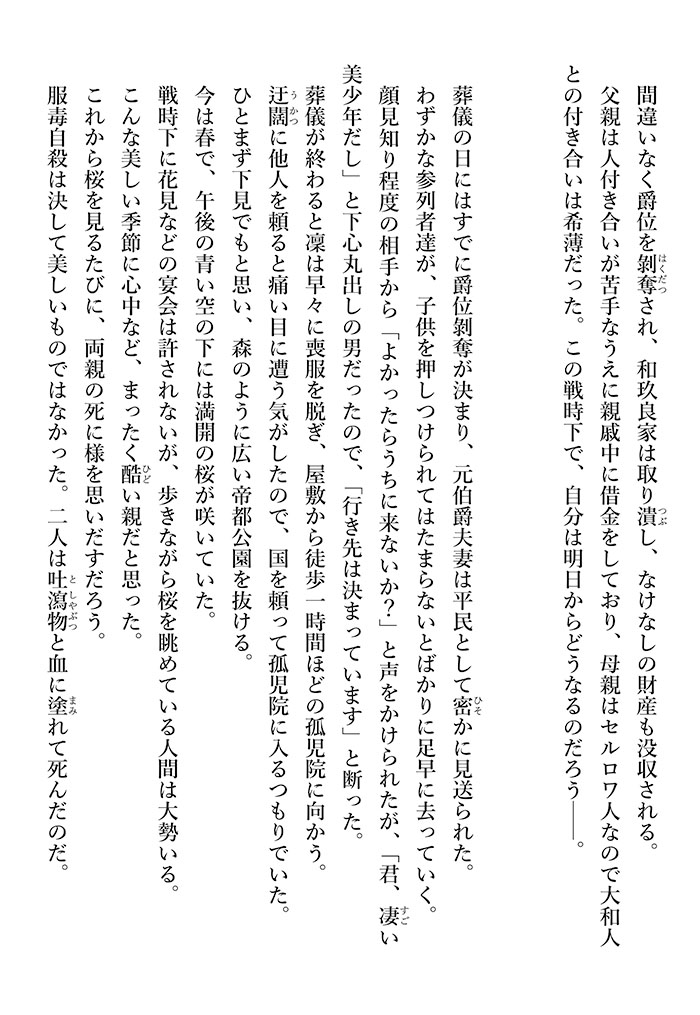 間違いなく爵位を剝奪され、和玖良家は取り潰し、なけなしの財産も没収される。
父親は人付き合いが苦手なうえに親戚中に借金をしており、母親はセルロワ人なので大和人
との付き合いは希薄だった。この戦時下で、自分は明日からどうなるのだろう――。
葬儀の日にはすでに爵位剝奪が決まり、元伯爵夫妻は平民として密かに見送られた。
わずかな参列者達が、子供を押しつけられてはたまらないとばかりに足早に去っていく。
顔見知り程度の相手から「よかったらうちに来ないか?」と声をかけられたが、「君、凄い
美少年だし」と下心丸出しの男だったので、「行き先は決まっています」と断った。
葬儀が終わると凜は早々に喪服を脱ぎ、屋敷から徒歩一時間ほどの孤児院に向かう。
迂闊に他人を頼ると痛い目に遭う気がしたので、国を頼って孤児院に入るつもりでいた。
ひとまず下見でもと思い、森のように広い帝都公園を抜ける。
今は春で、午後の青い空の下には満開の桜が咲いていた。
戦時下に花見などの宴会は許されないが、歩きながら桜を眺めている人間は大勢いる。
こんな美しい季節に心中など、まったく酷い親だと思った。
これから桜を見るたびに、両親の死に様を思いだすだろう。
服毒自殺は決して美しいものではなかった。二人は吐瀉物と血に塗れて死んだのだ。